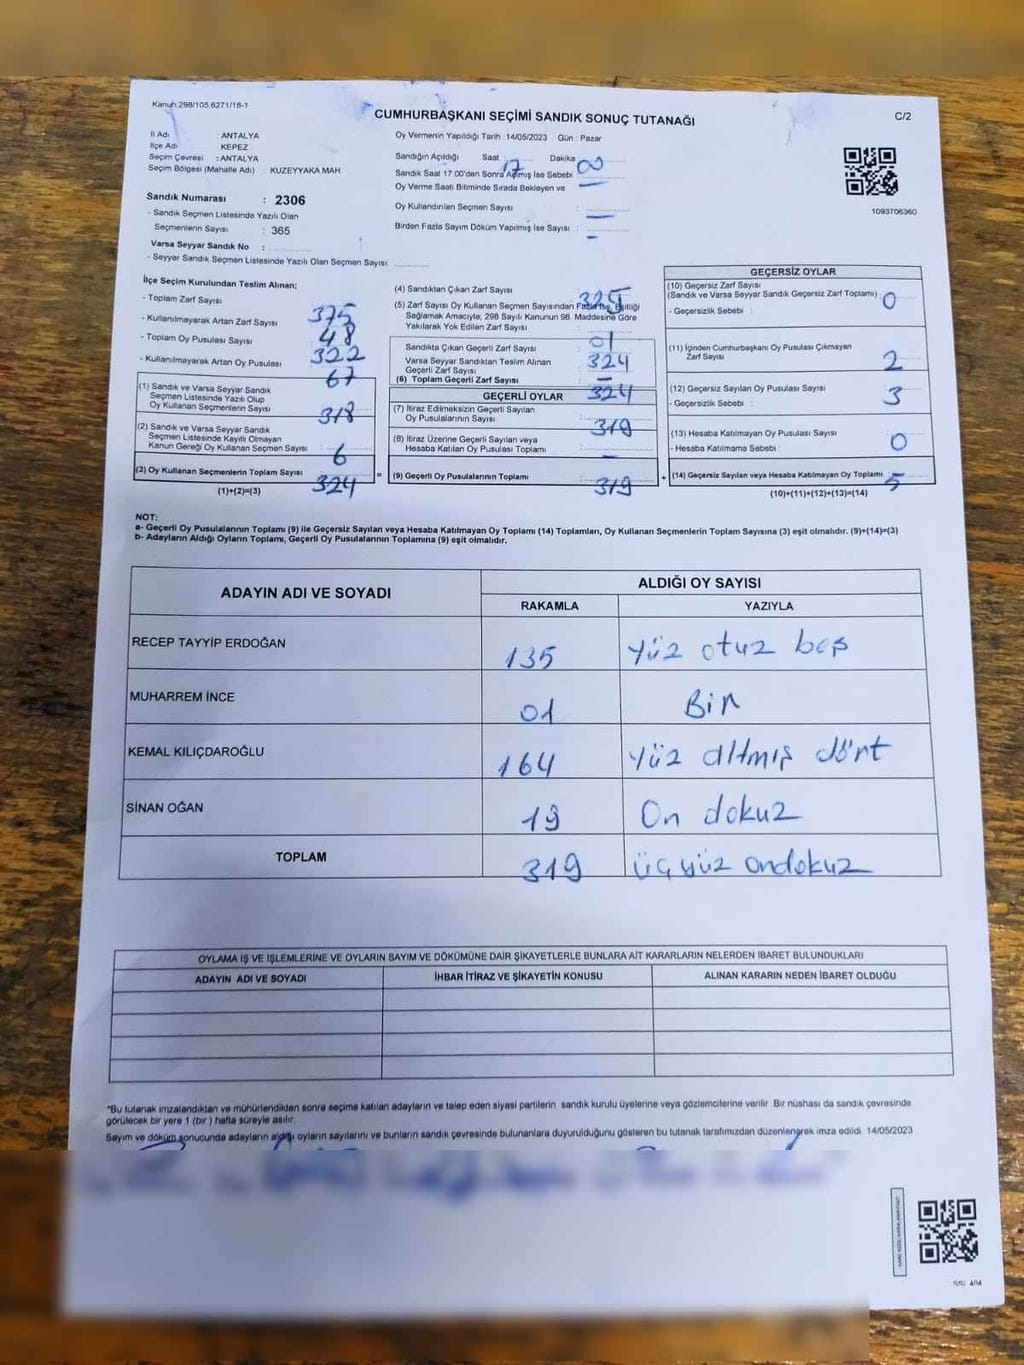 Kanun:298/105,6271/18-1
CUMHURBAŞKANI SEÇİMİ SANDIK SONUÇ TUTANAĞI
C/2
İl Adı ANTALYA
İlçe Adı KEPEZ
Seçim Çevresi : ANTALYA
Seçim Bölgesi (Mahalle Adı) KUZEYYAKA MAH
Oy Vermenin Yapıldığı Tarih : 14/05/2023 Gün : Pazar
Sandığın Açıldığı Saat 17 Dakika 00
Sandık Saat 17.00'den Sonra Açılmış İse Sebebi : —
Oy Verme Saati Bitiminde Sırada Bekleyen ve
Oy Kullandırılan Seçmen Sayısı : —
Birden Fazla Sayım Döküm Yapılmış İse Sayısı : —
1093706360
Sandık Numarası : 2306
- Sandık Seçmen Listesinde Yazılı Olan
Seçmenlerin Sayısı : 365
Varsa Seyyar Sandık No :
- Seyyar Sandık Seçmen Listesinde Yazılı Olan Seçmen Sayısı:
İlçe Seçim Kurulundan Teslim Alınan;
- Toplam Zarf Sayısı 375
- Kullanılmayarak Artan Zarf Sayısı 48
- Toplam Oy Pusulası Sayısı 322
- Kullanılmayarak Artan Oy Pusulası 67
(1) Sandık ve Varsa Seyyar Sandık
Seçmen Listesinde Yazılı Olup
Oy Kullanan Seçmenlerin Sayısı 318
(2) Sandık ve Varsa Seyyar Sandık
Seçmen Listesinde Kayıtlı Olmayan
Kanun Gereği Oy Kullanan Seçmen Sayısı 6
(3) Oy Kullanan Seçmenlerin Toplam Sayısı 324
(1)+(2)=(3)
(4) Sandıktan Çıkan Zarf Sayısı 325
(5) Zarf Sayısı Oy Kullanan Seçmen Sayısından Fazla İse, Eşitliği
Sağlamak Amacıyla; 298 Sayılı Kanunun 98. Maddesine Göre
Yakılarak Yok Edilen Zarf Sayısı : 01
Sandıkta Çıkan Geçerli Zarf Sayısı : 324
Varsa Seyyar Sandıktan Teslim Alınan
Geçerli Zarf Sayısı : —
(6) Toplam Geçerli Zarf Sayısı 324
GEÇERLİ OYLAR
(7) İtiraz Edilmeksizin Geçerli Sayılan
Oy Pusulalarının Sayısı : 319
(8) İtiraz Üzerine Geçerli Sayılan veya
Hesaba Katılan Oy Pusulası Toplamı : —
= (9) Geçerli Oy Pusulalarının Toplamı 319
GEÇERSİZ OYLAR
(10) Geçersiz Zarf Sayısı
(Sandık ve Varsa Seyyar Sandık Geçersiz Zarf Toplamı) : 0
- Geçersizlik Sebebi :
(11) İçinden Cumhurbaşkanı Oy Pusulası Çıkmayan
Zarf Sayısı 2
(12) Geçersiz Sayılan Oy Pusulası Sayısı : 3
- Geçersizlik Sebebi :
(13) Hesaba Katılmayan Oy Pusulası Sayısı : 0
- Hesaba Katılmama Sebebi :
+ (14) Geçersiz Sayılan veya Hesaba Katılmayan Oy Toplamı 5
(10)+(11)+(12)+(13)=(14)
NOT:
a- Geçerli Oy Pusulalarının Toplamı (9) ile Geçersiz Sayılan veya Hesaba Katılmayan Oy Toplamı (14) Toplamları, Oy Kullanan Seçmenlerin Toplam Sayısına (3) eşit olmalıdır. (9)+(14)=(3)
b- Adayların Aldığı Oyların Toplamı, Geçerli Oy Pusulalarının Toplamına (9) eşit olmalıdır.
ADAYIN ADI VE SOYADI
ALDIĞI OY SAYISI
RAKAMLA YAZIYLA
RECEP TAYYİP ERDOĞAN 135 Yüz otuz beş
MUHARREM İNCE 01 Bir
KEMAL KILIÇDAROĞLU 164 Yüz altmış dört
SİNAN OĞAN 19 On dokuz
TOPLAM 319 üçyüz ondokuz
OYLAMA İŞ VE İŞLEMLERİNE VE OYLARIN SAYIM VE DÖKÜMÜNE DAİR ŞİKAYETLERLE BUNLARA AİT KARARLARIN NELERDEN İBARET BULUNDUKLARI
ADAYIN ADI VE SOYADI İHBAR İTİRAZ VE ŞİKAYETİN KONUSU ALINAN KARARIN NEDEN İBARET OLDUĞU
*Bu tutanak imzalandıktan ve mühürlendikten sonra seçime katılan adayların ve talep eden siyasi partilerin sandık kurulu üyelerine veya gözlemcilerine verilir. Bir nüshası da sandık çevresinde
görülecek bir yere 1 (bir ) hafta süreyle asılır.
Sayım ve döküm sonucunda adayların aldığı oyların sayılarını ve bunların sandık çevresinde bulunanlara duyurulduğunu gösteren bu tutanak tarafımızdan düzenlenerek imza edildi. 14/05/2023